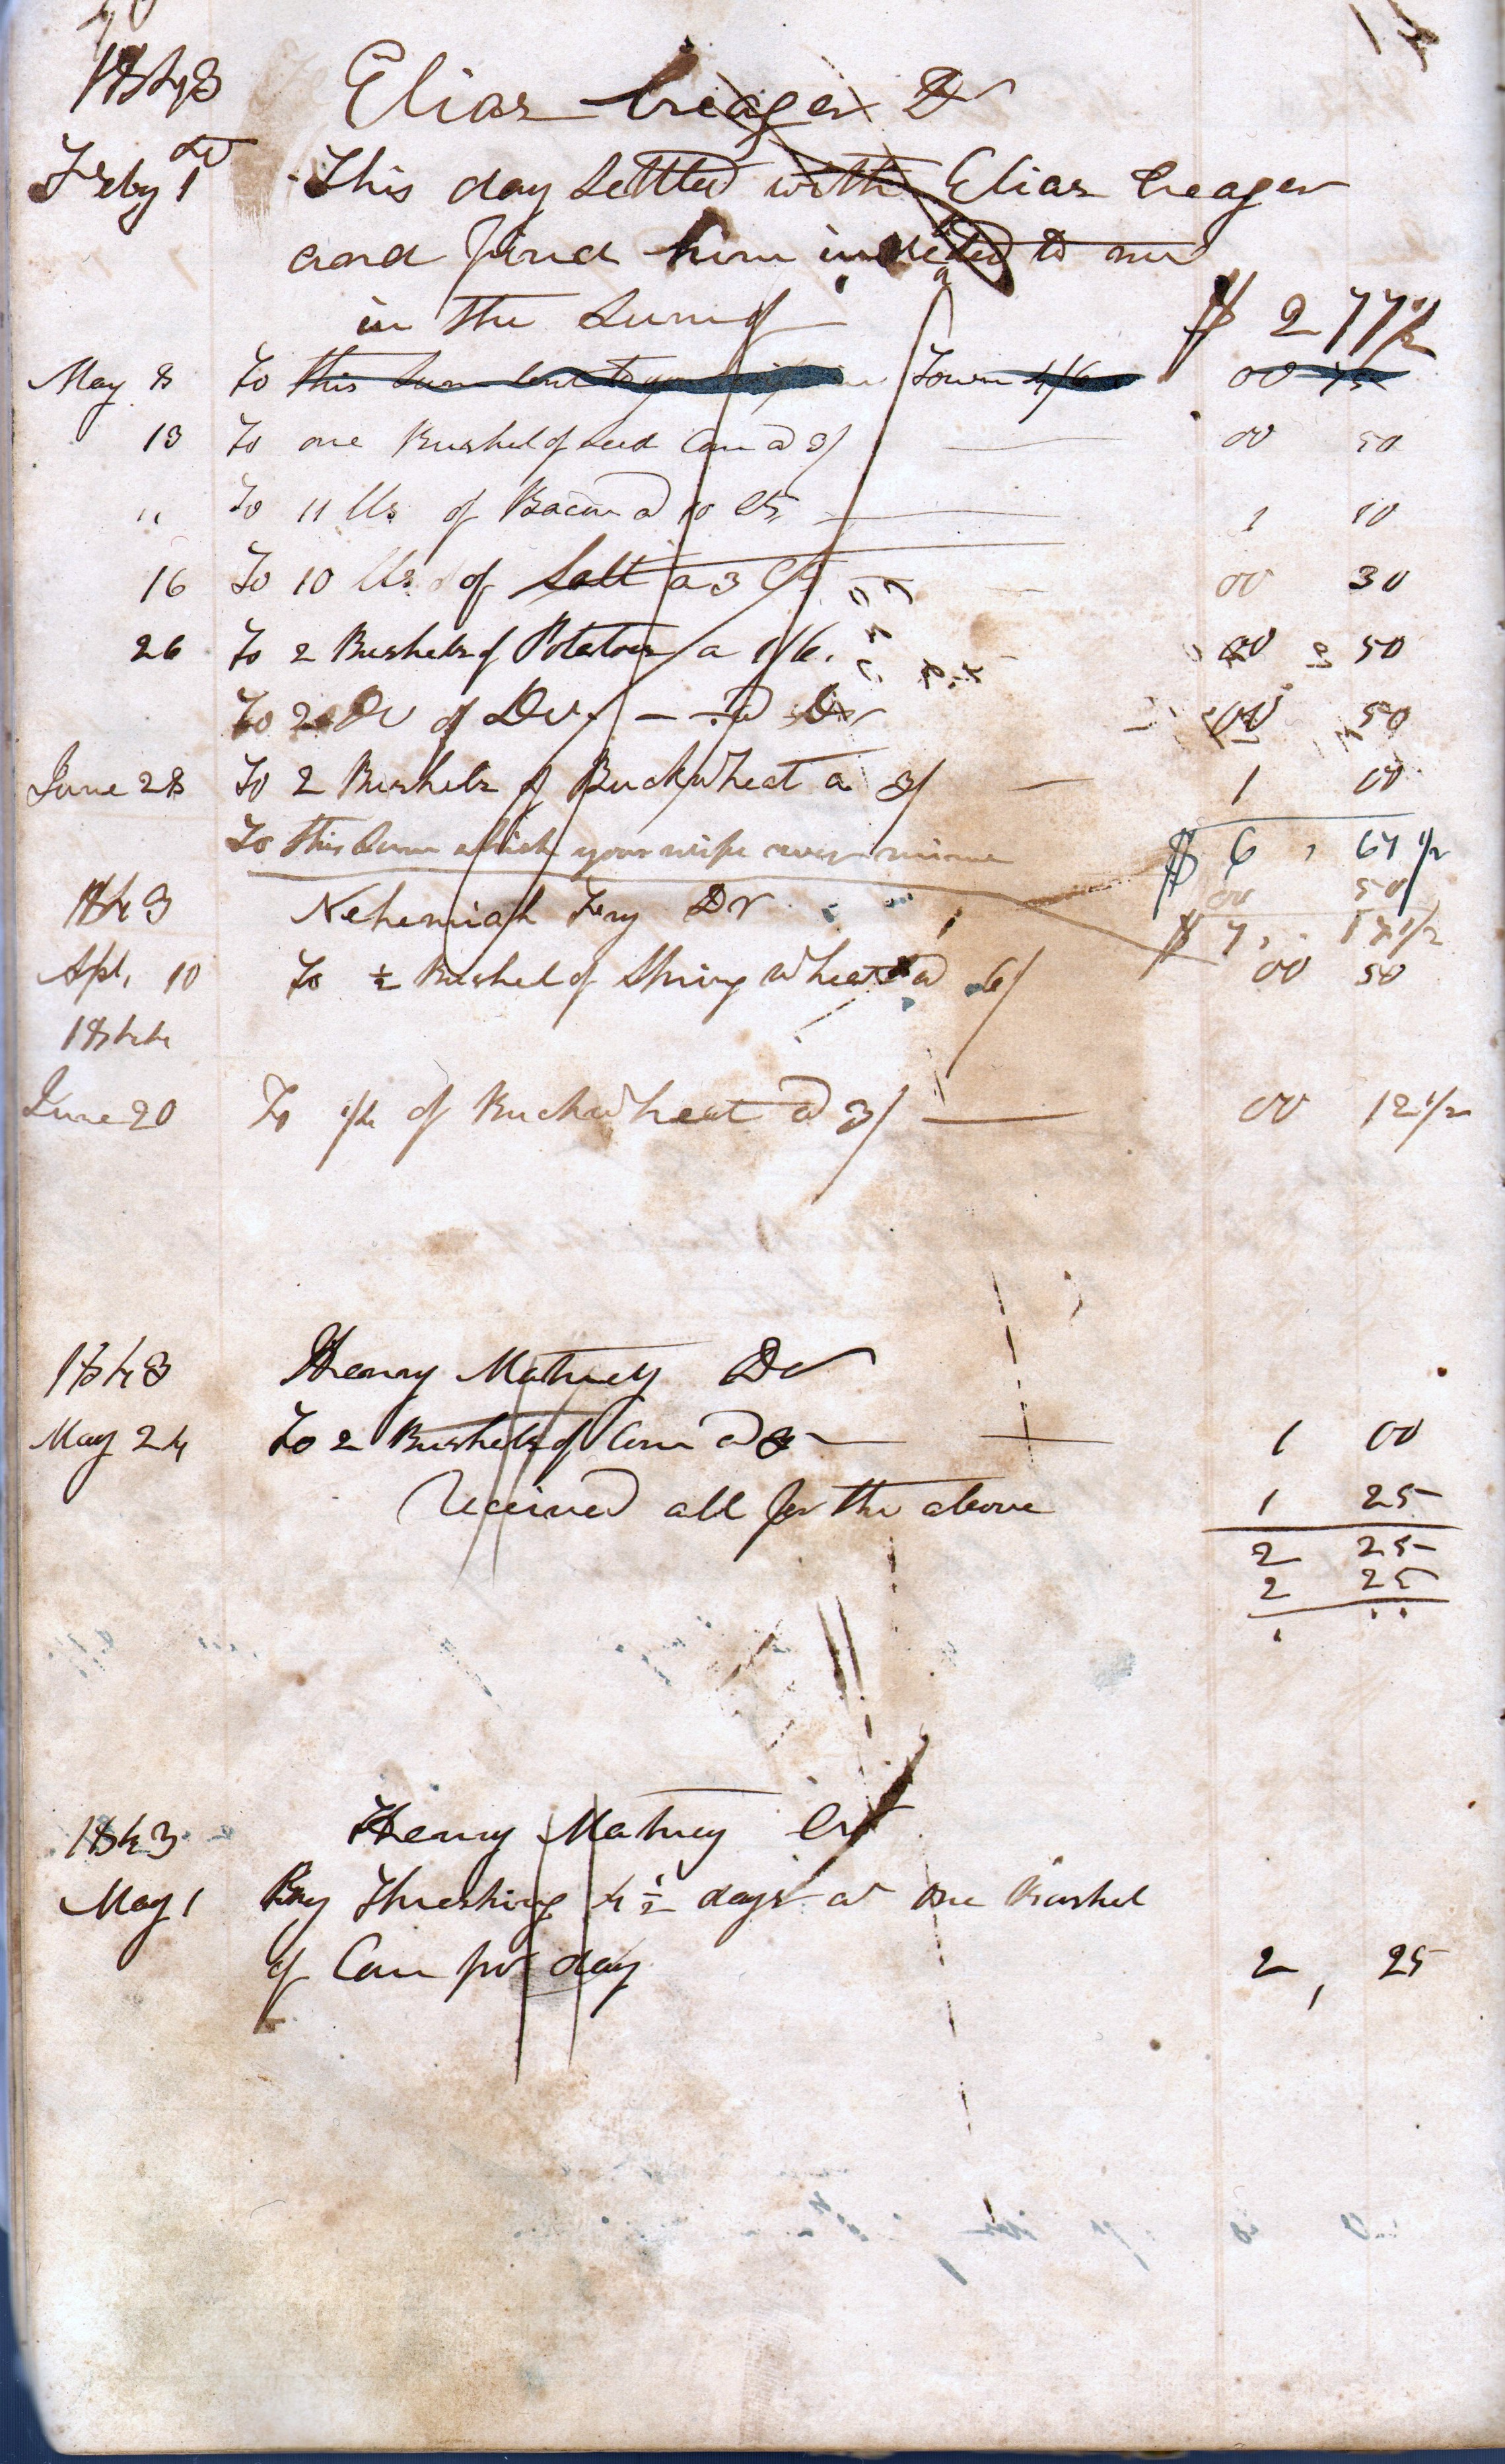 1843 Elias Creager Dr
Feby 1st This day Settled with Elias Creager
and find him indebted to me
in the Sum of $ 2 77 1/2
May 8 To this Sum lent to your wife in Town 4/6 00 75
13 To one Bushel of seed Corn a 3/ 00 50
" To 11 lbs of Bacon a 10 Cts 1 10
16 To 10 lbs of Salt a 3 Cts 00 30
26 To 2 Bushels of Potatoes a 1/6. 00 50
To 2 Do of Do. — a Do 00 50
June 28 To 2 Bushels of Buckwheat a 3/ 1 00
$ 6, 67 1/2
To this Sum which your wife owes mine 00 50
$ 7, 17 1/2
1843 Nehemiah Fry Dr
Apl, 10 To 1/2 Bushel of Spring Wheat a 6/ 00 50
1844
June 20 To 1/4 of Buckwheat a 3/ 00 12 1/2
1843 Henry Matney Dr
May 24 To 2 Bushels of Corn a 3 1 00
Received all for the above 1 25
2 25
2 25
1843 Henry Matney Cr
May 1 By Threshing 4 1/2 days at One Bushel
of Corn per day 2, 25